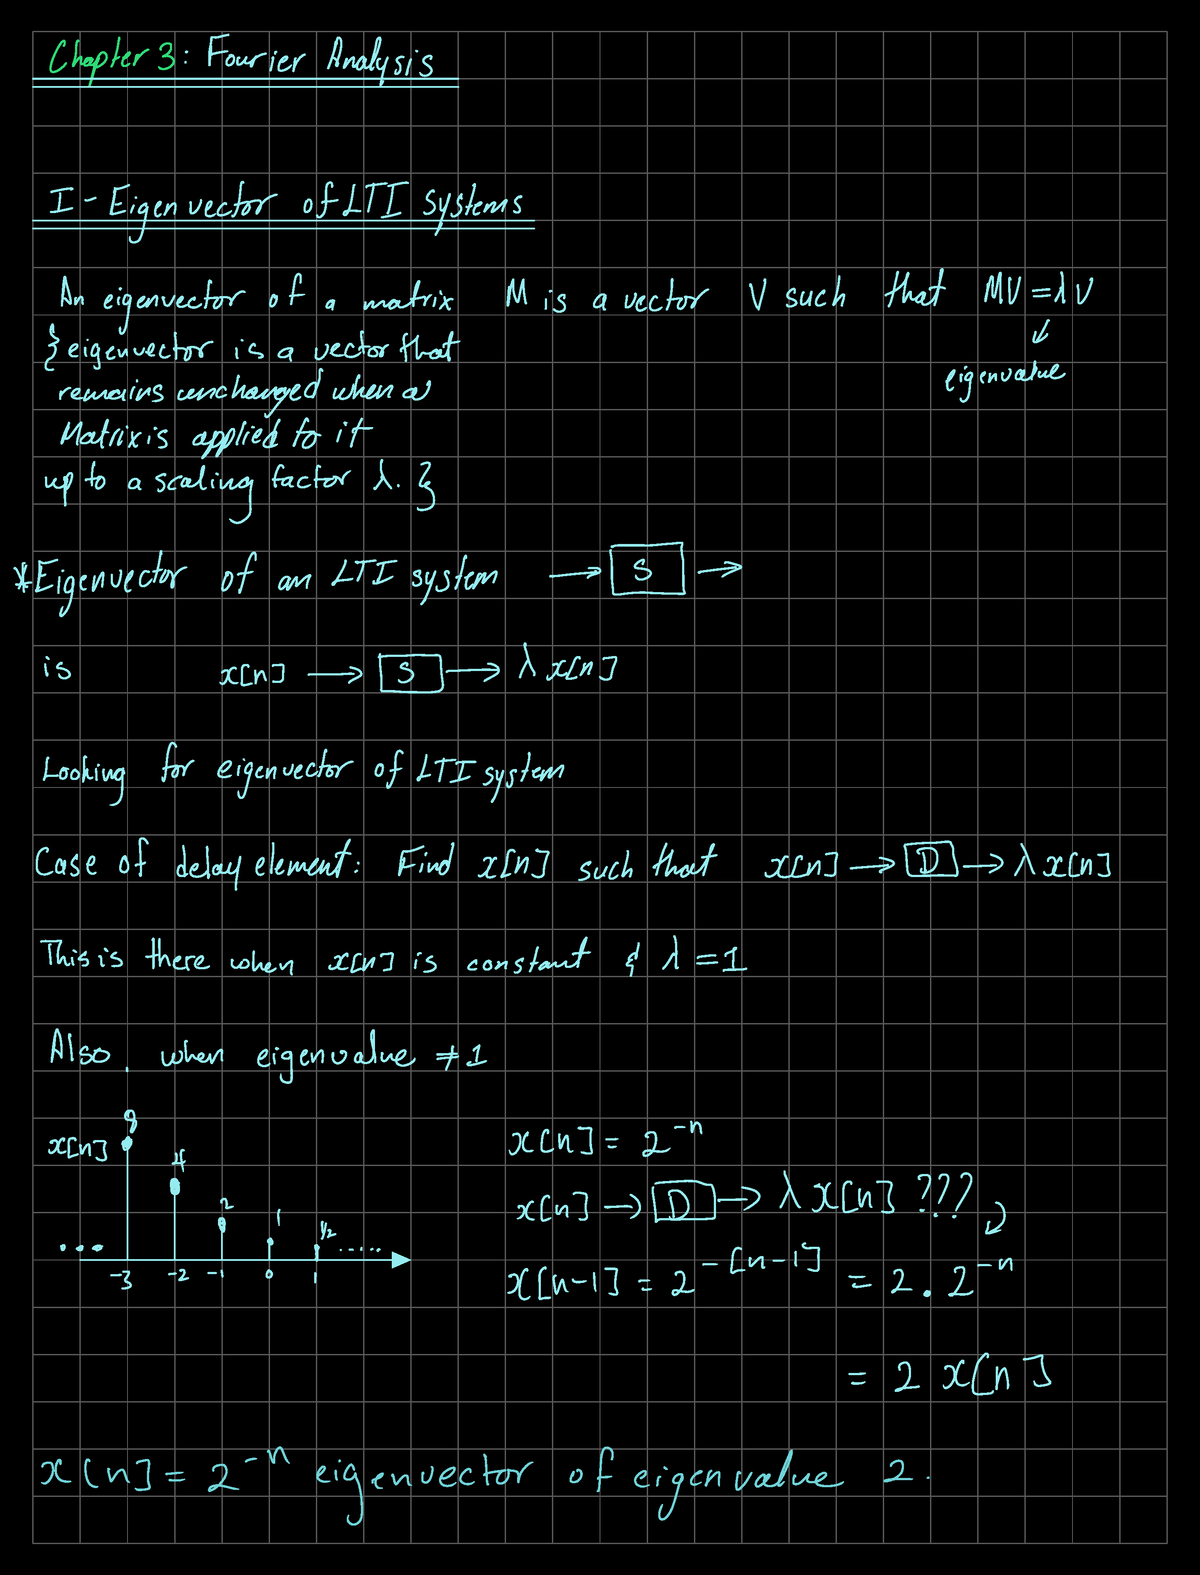 Chapter 3: Fourier Analysis
I - Eigenvector of LTI systems
An eigenvector of a matrix M is a vector V such that MV = λV
eigenvalue
{eigenvector is a vector that
remains unchanged when a
Matrix is applied to it
up to a scaling factor λ.}
*Eigenvector of an LTI system → S →
is x[n] → S → λ x[n]
Looking for eigenvector of LTI system
Case of delay element: Find x[n] such that x[n] → D → λ x[n]
This is there when x[n] is constant & λ = 1
Also, when eigenvalue ≠ 1
x[n] 8 4 2 1 1/2
... .....
-3 -2 -1 0 1
x[n] = 2^-n
x[n] → D → λ x[n] ???
x[n-1] = 2^-[n-1] = 2 . 2^-n
= 2 x[n]
x[n] = 2^-n eigenvector of eigenvalue 2.